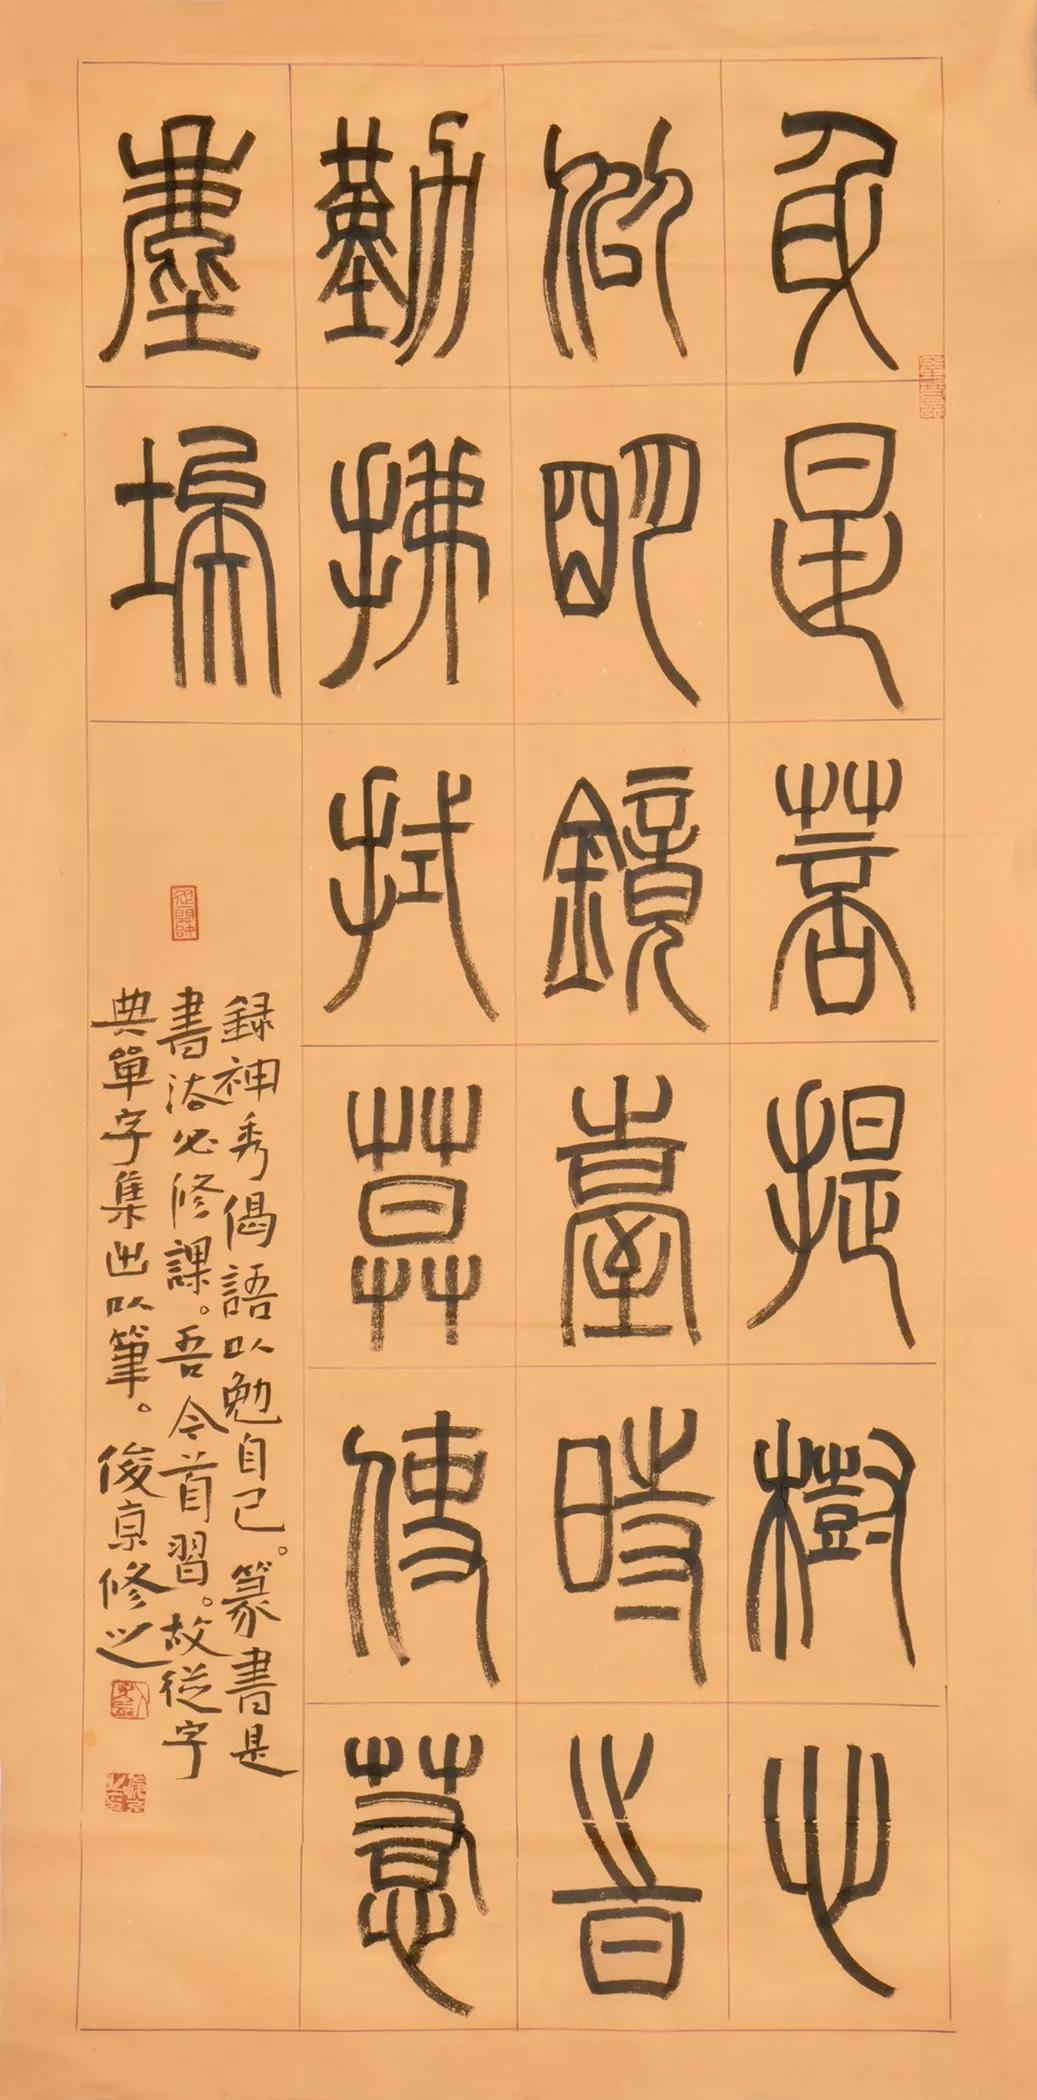 身是菩提樹心
似明鏡臺時旹
勤拂拭莫使惹
塵埽
録神秀偈語以勉自己。篆書是
書法必修課。吾今首習。故從字
典單字集出以筆。俊京修之